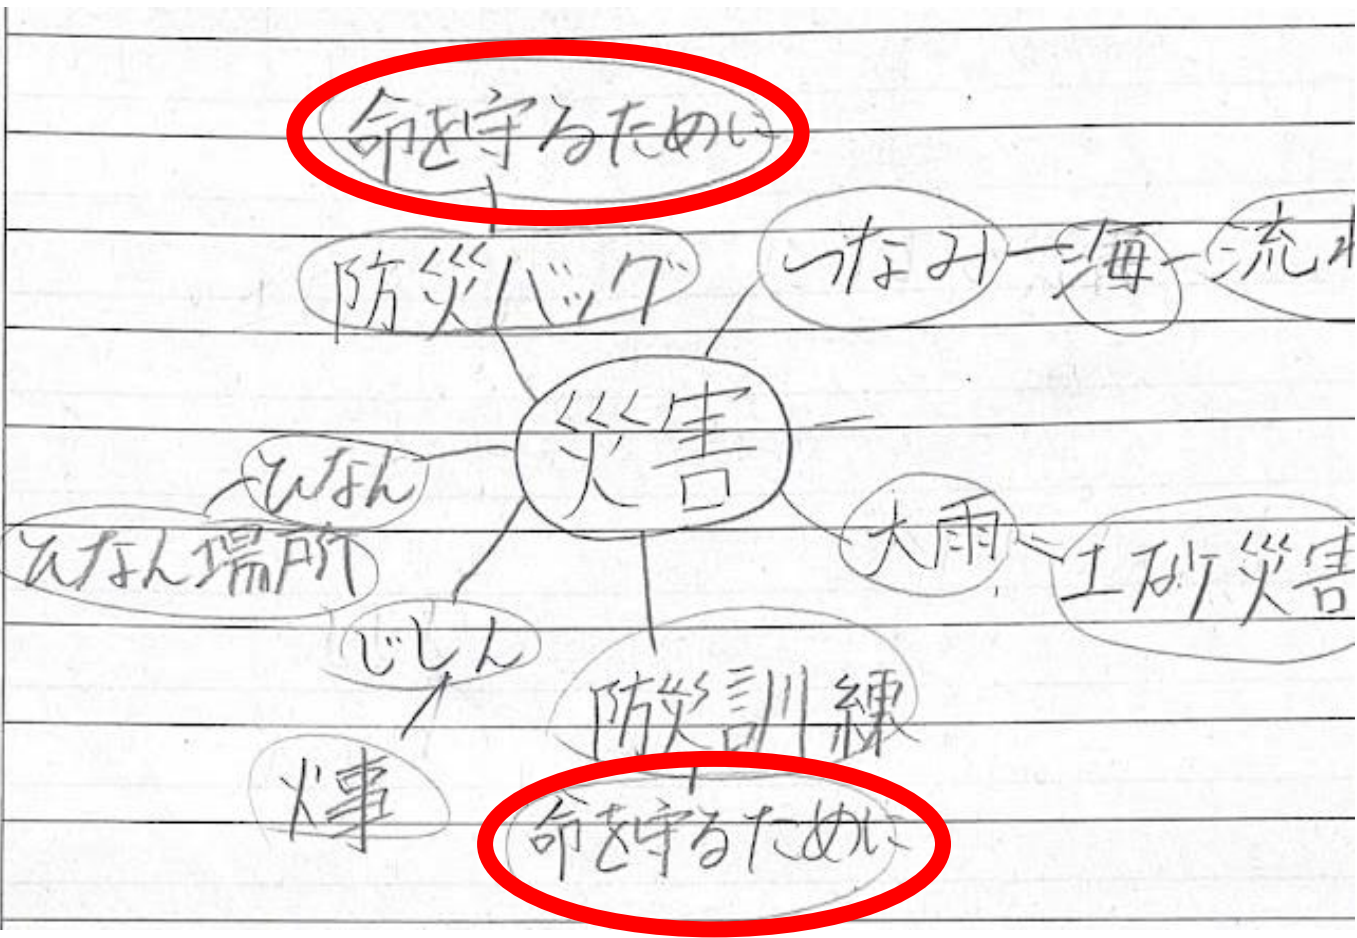 命を守るために
防災バッグ
つなみ
海
流れ
災害
ひなん
ひなん場所
大雨
土砂災害
じしん
防災訓練
火事
命を守るために